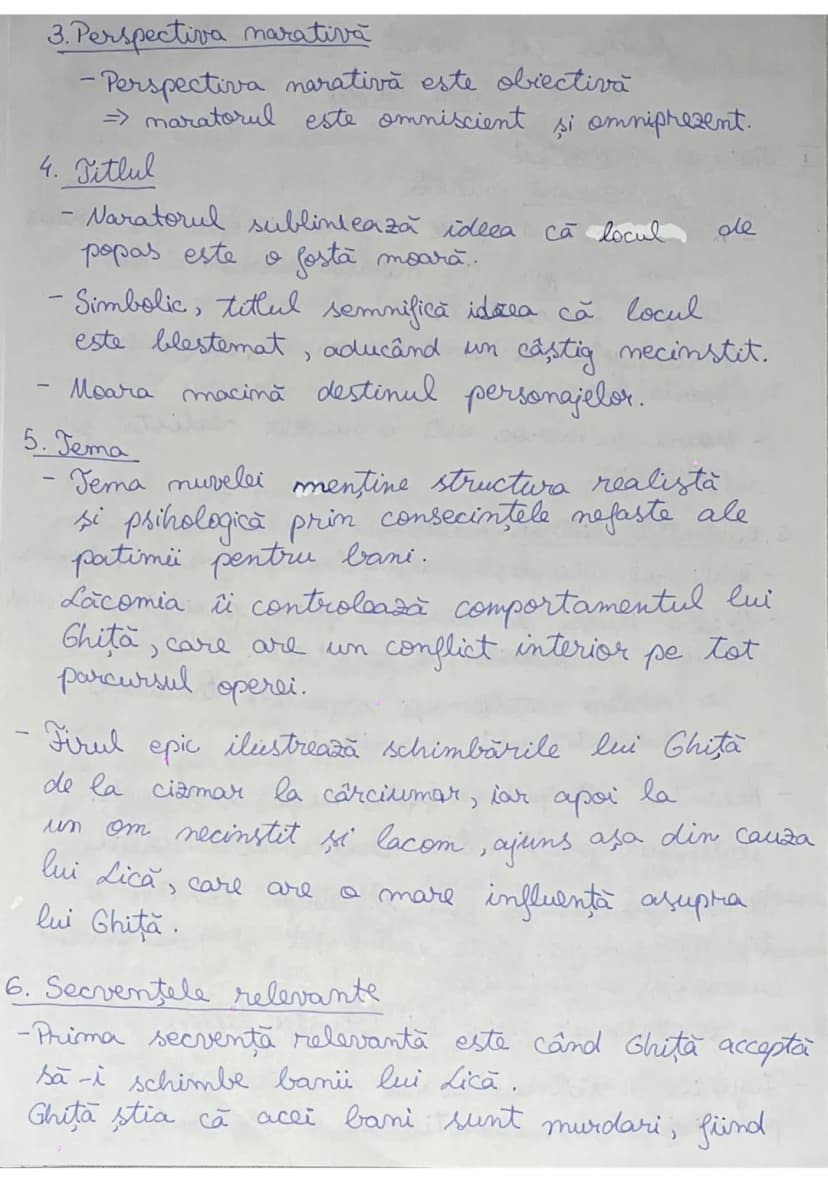 3. Perspectiva narativă
- Perspectiva narativă este obiectivă
=> naratorul este omniscient și omniprezent.
4. Titlul
- Naratorul subliniează ideea că locul de
popas este o fostă moară.
- Simbolic, titlul semnifică ideea că locul
este blestemat, aducând un câștig necinstit.
- Moara macină destinul personajelor.
5. Tema
- Tema nuvelei menține structura realistă
și psihologică prin consecințele nefaste ale
patimii pentru bani.
Lăcomia îi controlează comportamentul lui
Ghiță, care are un conflict interior pe tot
parcursul operei.
- Firul epic ilustrează schimbările lui Ghiță
de la cizmar la cârciumar, iar apoi la
un om necinstit și lacom, ajuns așa din cauza
lui Lică, care are o mare influență asupra
lui Ghiță.
6. Secvențele relevante
- Prima secvență relevantă este când Ghiță acceptă
să-i schimbe banii lui Lică.
Ghiță știa că acei bani sunt murdari, fiind